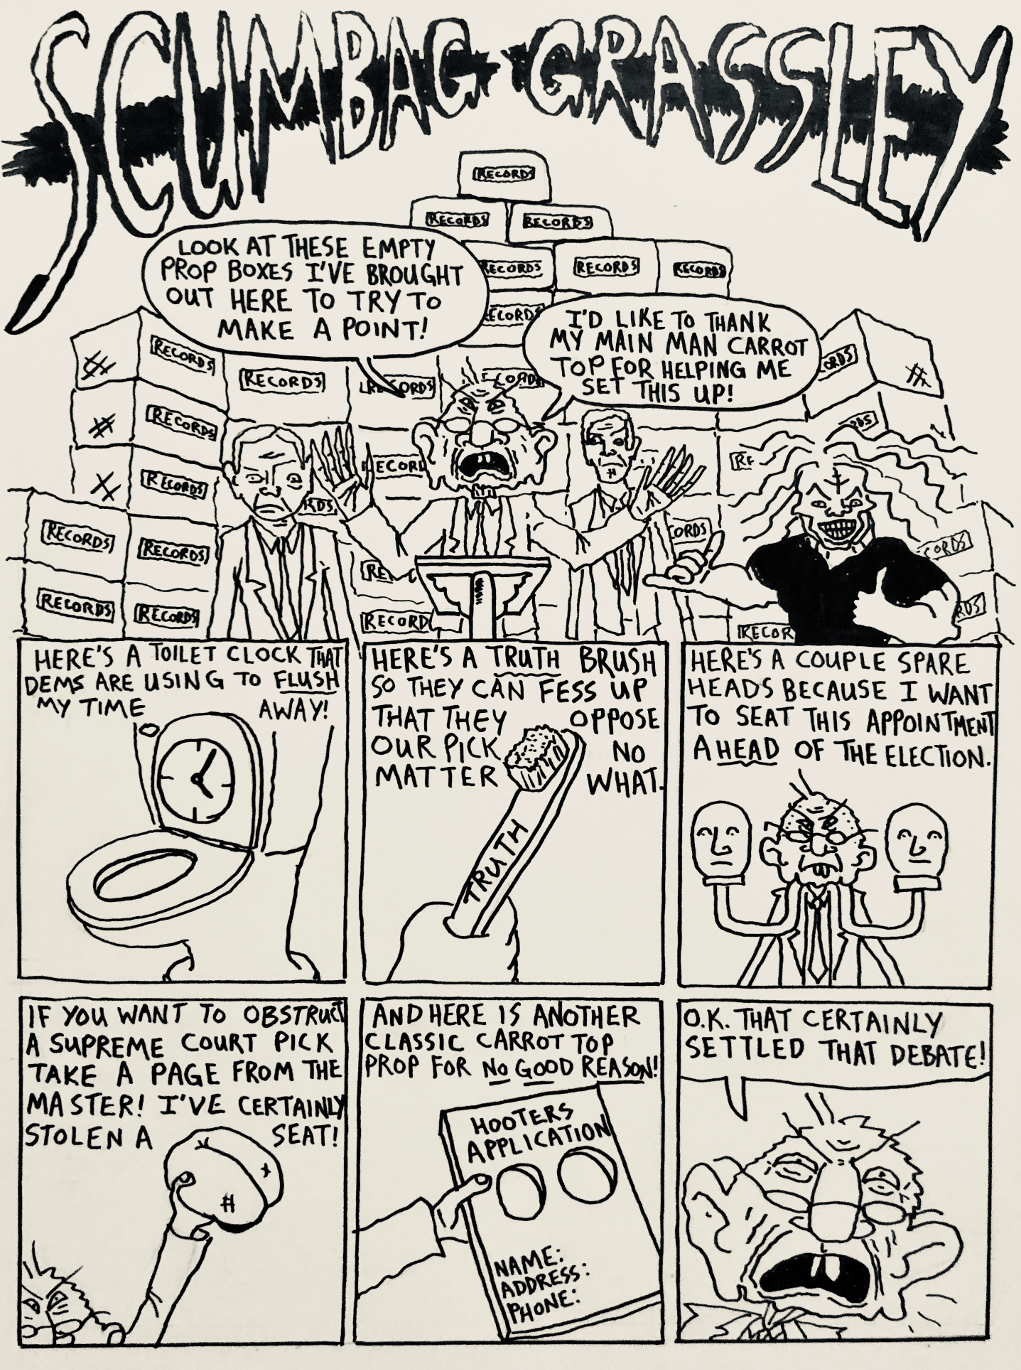 SCUMBAG GRASSLEY
RECORDS
RECORDS
RECORDS
LOOK AT THESE EMPTY
PROP BOXES I'VE BROUGHT
OUT HERE TO TRY TO
MAKE A POINT!
RECORDS
RECORDS
RECORDS
ECORDS
I'D LIKE TO THANK
MY MAIN MAN CARROT
TOP FOR HELPING ME
SET THIS UP!
RECORDS
RECORDS
RECORDS
CORDS
ORDS
RECORDS
RECORDS
RECORDS
RECORDS
RECORDS
RECORDS
RECORD
RECOR
HERE'S A TOILET CLOCK THAT
DEMS ARE USING TO FLUSH
MY TIME AWAY!
HERE'S A TRUTH BRUSH
SO THEY CAN FESS UP
THAT THEY OPPOSE
OUR PICK NO
MATTER WHAT.
TRUTH
HERE'S A COUPLE SPARE
HEADS BECAUSE I WANT
TO SEAT THIS APPOINTMENT
AHEAD OF THE ELECTION.
IF YOU WANT TO OBSTRUCT
A SUPREME COURT PICK
TAKE A PAGE FROM THE
MASTER! I'VE CERTAINLY
STOLEN A SEAT!
AND HERE IS ANOTHER
CLASSIC CARROT TOP
PROP FOR NO GOOD REASON!
HOOTERS
APPLICATION
NAME:
ADDRESS:
PHONE:
O.K. THAT CERTAINLY
SETTLED THAT DEBATE!